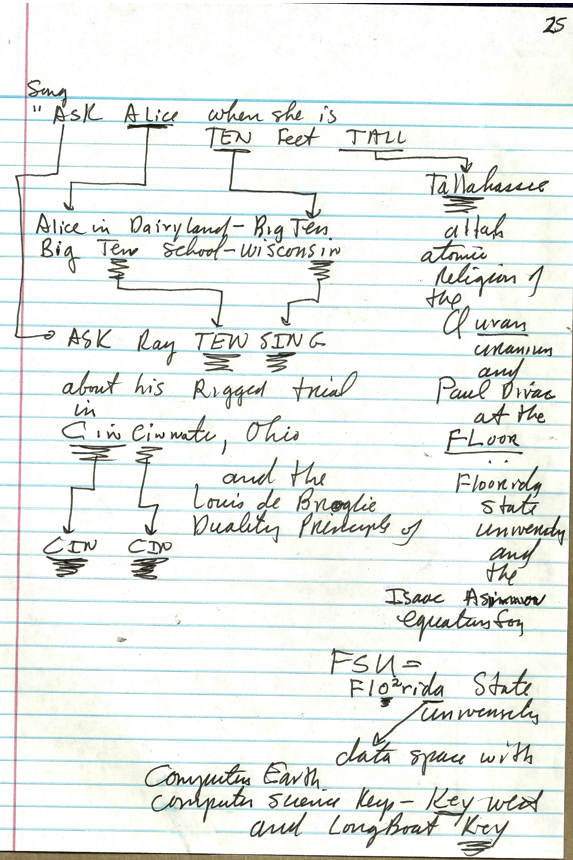 25
Song
" ASK Alice when she is
TEN Feet TALL
Tallahassee
allah
atomic
Religion of
the
Quran
uranium
and
Paul Dirac
at the
FLOOR
Floorida
State
university
and
the
Isaac
equation for
Alice in Dairyland - Big Ten
Big Ten school - wisconsin
ASK Ray TEW SING
about his Rigged trial
in
Cin Cinnate, Ohio
and the
Louis de Broglie
Duality Principle of
CIN CIN
FSU =
Flo²rida State
university
data space with
Computer Earth
Computer science Keys - Key west
and LongBoat Key